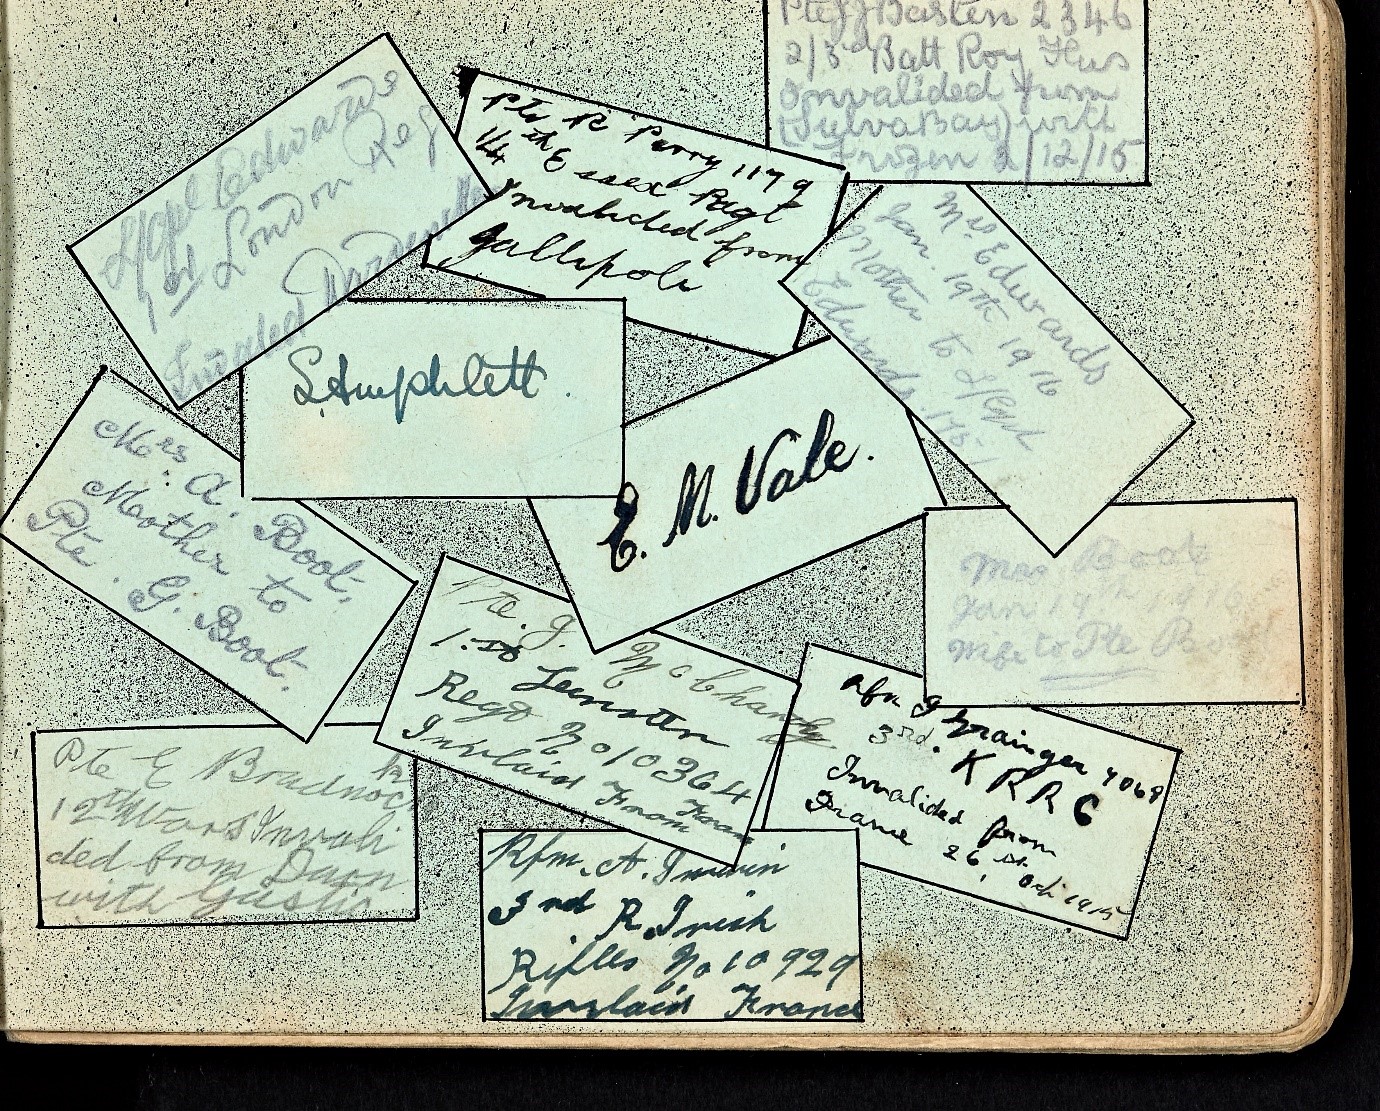 Pte J Basten 2346
2/3rd Batt Roy Fus
Invalided from
(Suvla Bay) with
Frozen 2/12/15
L/Cpl Edwards
1st London Reg
Invalided Dardanelles
Pte R Perry 1179
14th Essex Regt
Invalided from
Gallipoli
Mrs Edwards
Jan. 19th 1916
Mother to L/Cpl
Edwards
S. Amphlett.
E. M. Vale.
Mrs A. Boot.
Mother to
Pte. G. Boot.
Mrs Boot
Jan 19th 1916
Wife to Pte Boot
Pte. J.
1.st Leinster
Regt No 10364
Invlaid From Fran
Rfn J Grainger 4068
3rd. K R R C
Invalided from
France 26, Oct 1915
Pte E Bradnock
12th Worcs Invali
ded from Darn
with Gastic
Rfm. A. Irwin
3rd R. Irish
Rifles No 10929
Invlaid France